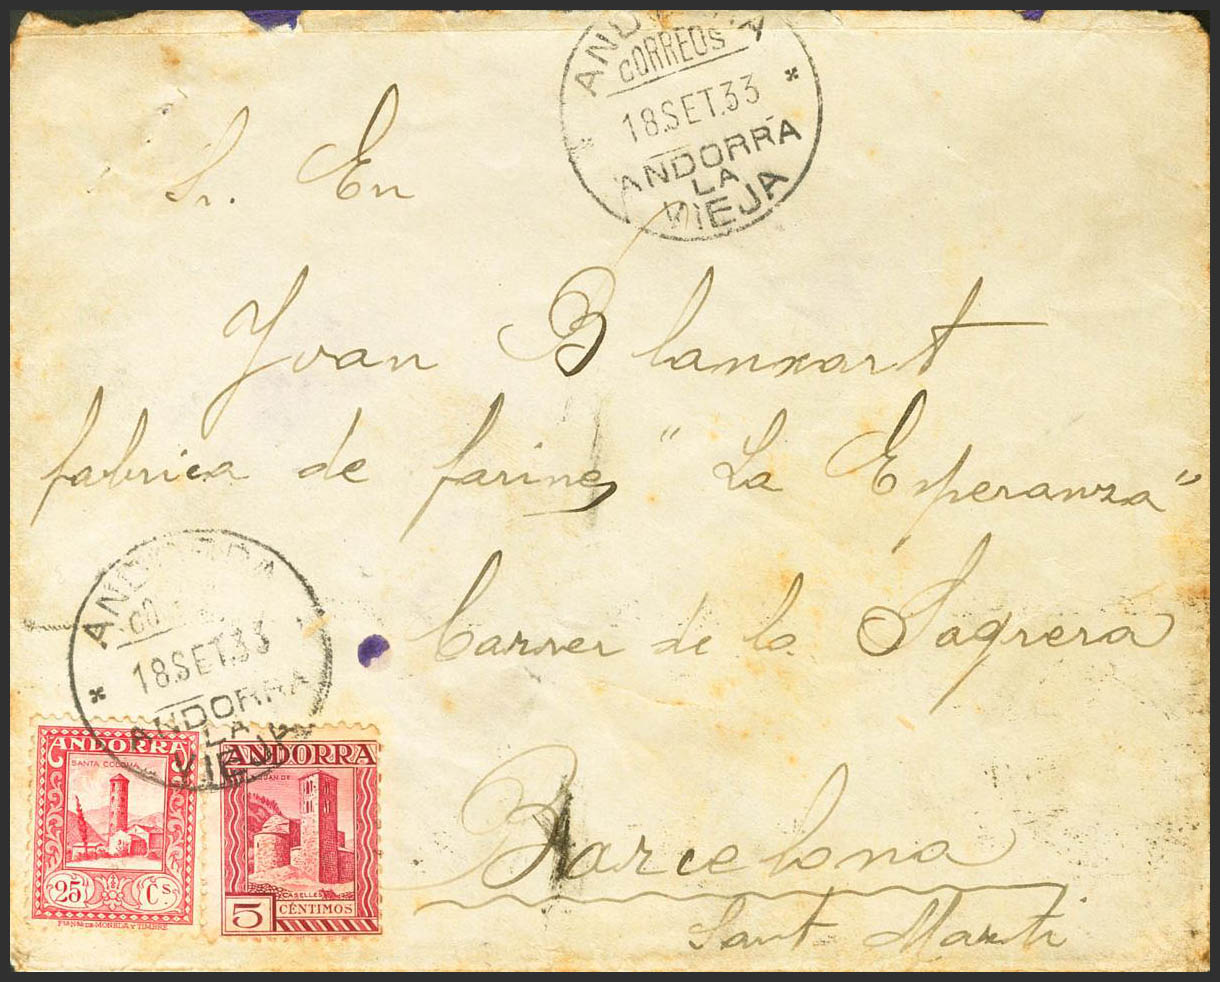 ANDORRA
CORREOS
18.SET.33
ANDORRA
LA
VIEJA
Sr. En
Joan Blanxart
fabrica de farines "La Esperanza"
Carrer de la Sagrera
Barcelona
Sant Marti
ANDORRA
CO
18.SET.33
ANDORRA
LA
VIEJA
ANDORRA
SANTA COLOMA
25 Cs.
FCA. NAL. DE MONEDA Y TIMBRE
ANDORRA
JUAN DE
CASELLES
5 CÉNTIMOS